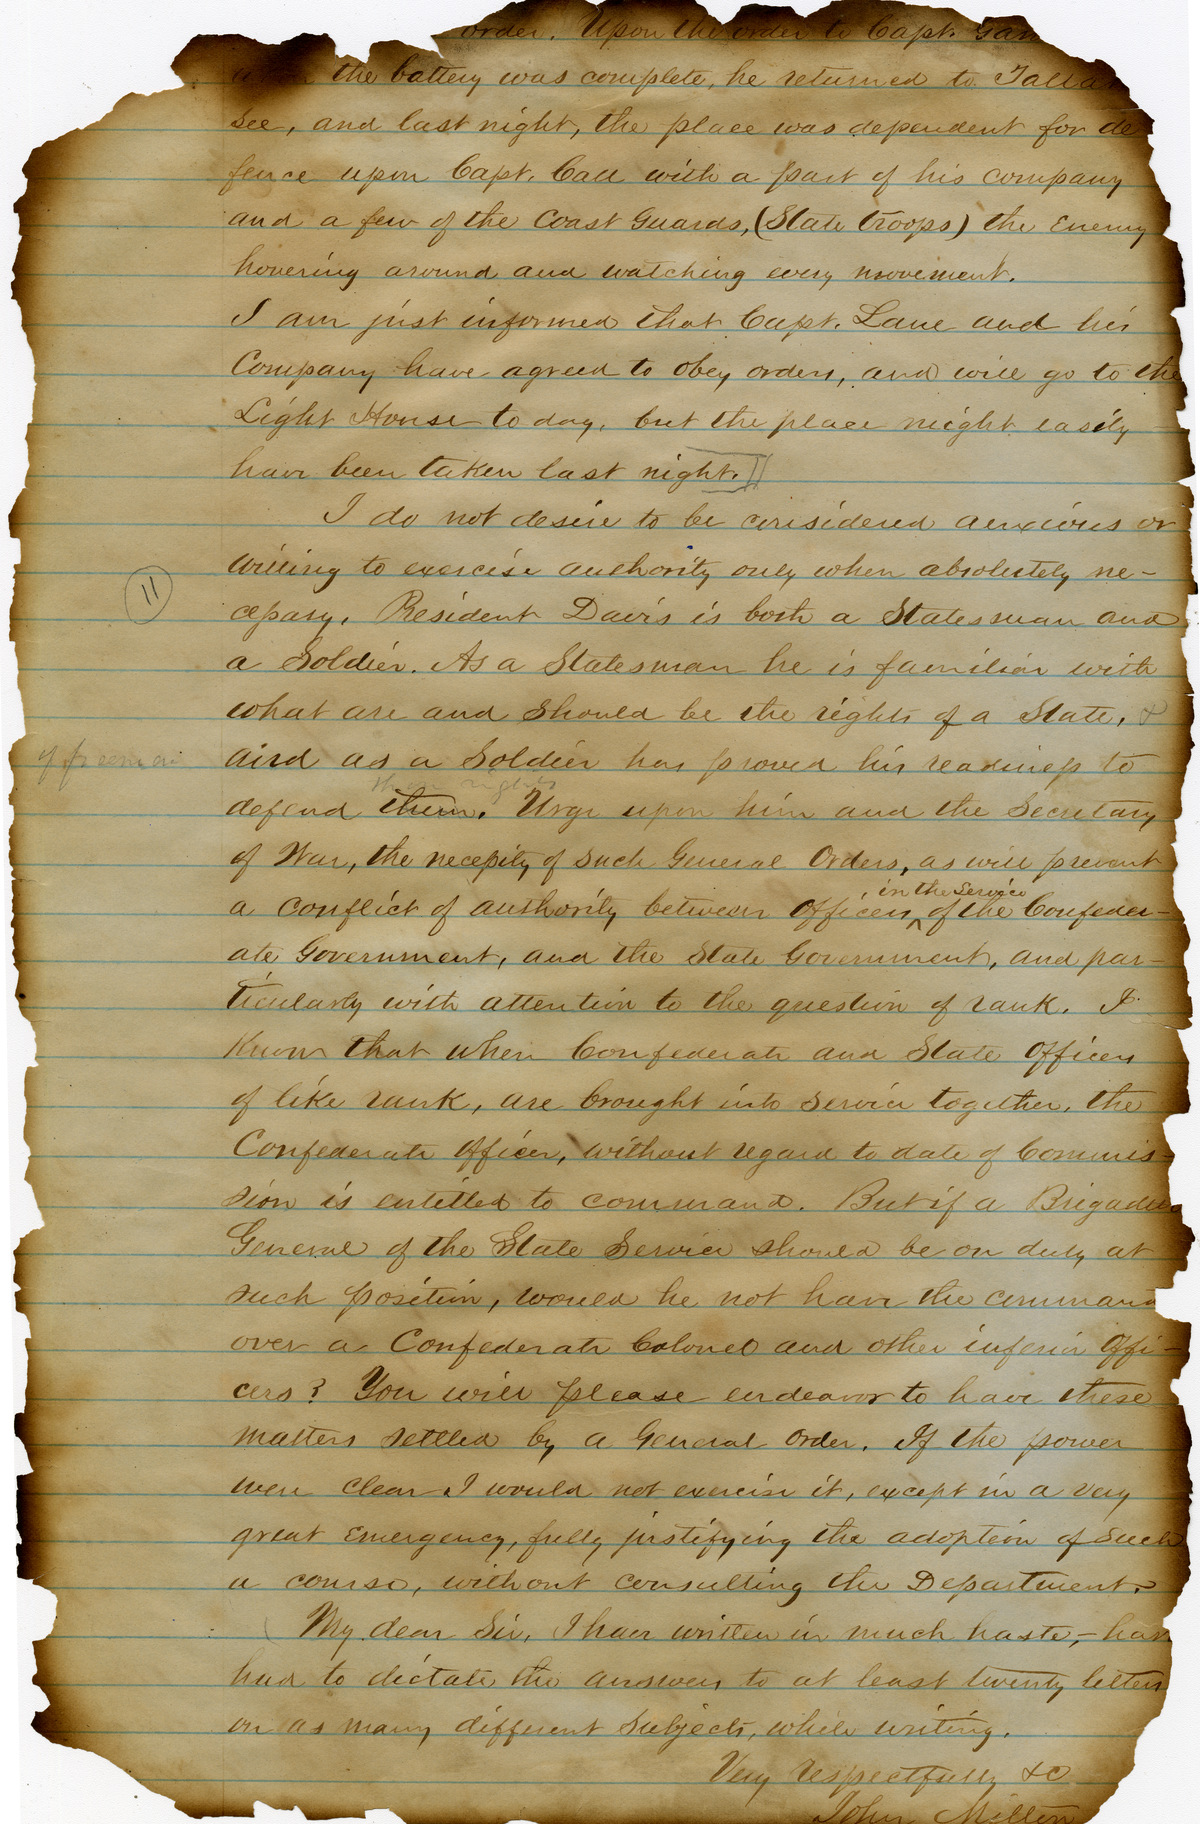 order. Upon the order to Capt. Gam
upon the battery was complete, he returned to Tallahas
see, and last night, the place was dependent for de
fence upon Capt. Call with a part of his company
and a few of the Coast Guards, (State troops) the Enemy
hovering around and watching every movement.
I am just informed that Capt. Lane and his
Company have agreed to obey orders, and will go to the
Light House to day, but the place might easily
have been taken last night.
I do not desire to be considered anxious or
willing to exercise authority only when absolutely ne-
11
cessary. President Davis is both a Statesman and
a Soldier. As a Statesman he is familiar with
what are and should be the rights of a State, &
of freemen
and as a Soldier has proved his readiness to
their rights
defend them. Urge upon him and the Secretary
of War, the necessity of such General Orders, as will prevent
in the service
a conflict of authority between Officers, of the Confeder-
ate Government, and the State Government, and par-
ticularly with attention to the question of rank. I
Know that when Confederate and State Officers
of like rank, are brought into service together, the
Confederate Officer, without regard to date of Commis-
sion is entitled to command. But if a Brigadier
General of the State Service should be on duty at
such position, would he not have the command
over a Confederate Colonel and other inferior Offi-
cers? You will please endeavor to have these
matters settled by a General Order. If the power
were clear I would not exercise it, except in a very
great Emergency, fully justifying the adoption of such
a course, without consulting the Department.
My dear Sir, I have written in much haste,- have
had to dictate the answers to at least twenty letters
on as many different Subjects, while writing.
Very respectfully &c
John Milton